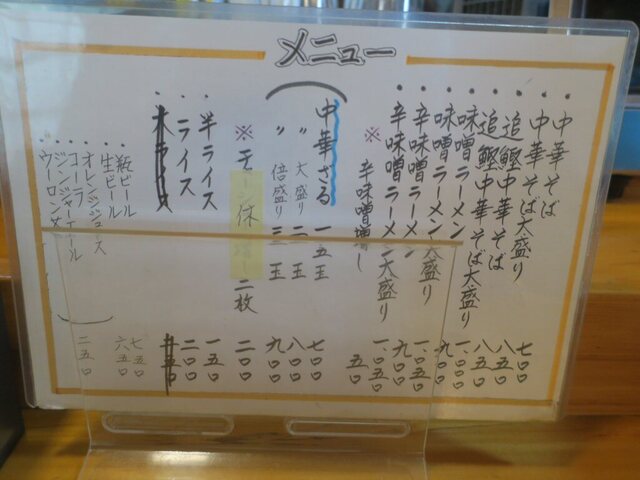 メニュー
中華そば 七〇〇
中華そば大盛り 八五〇
追鰹中華そば 八五〇
追鰹中華そば大盛り 一、〇〇〇
味噌ラーメン 九〇〇
味噌ラーメン大盛り 一、〇五〇
辛味噌ラーメン 九〇〇
辛味噌ラーメン大盛り 一、〇五〇
※ 辛味噌増し 五〇
中華ざる 一、五玉 七〇〇
〃 大盛り 二玉 八〇〇
〃 倍盛り 三玉 九〇〇
※ 休 増し二枚 二〇〇
半ライス 一五〇
ライス 二〇〇
ライス
瓶ビール 七五〇
生ビール 六五〇
オレンジジュース
コーラ
ジンジャーエール
ウーロン茶
二五〇